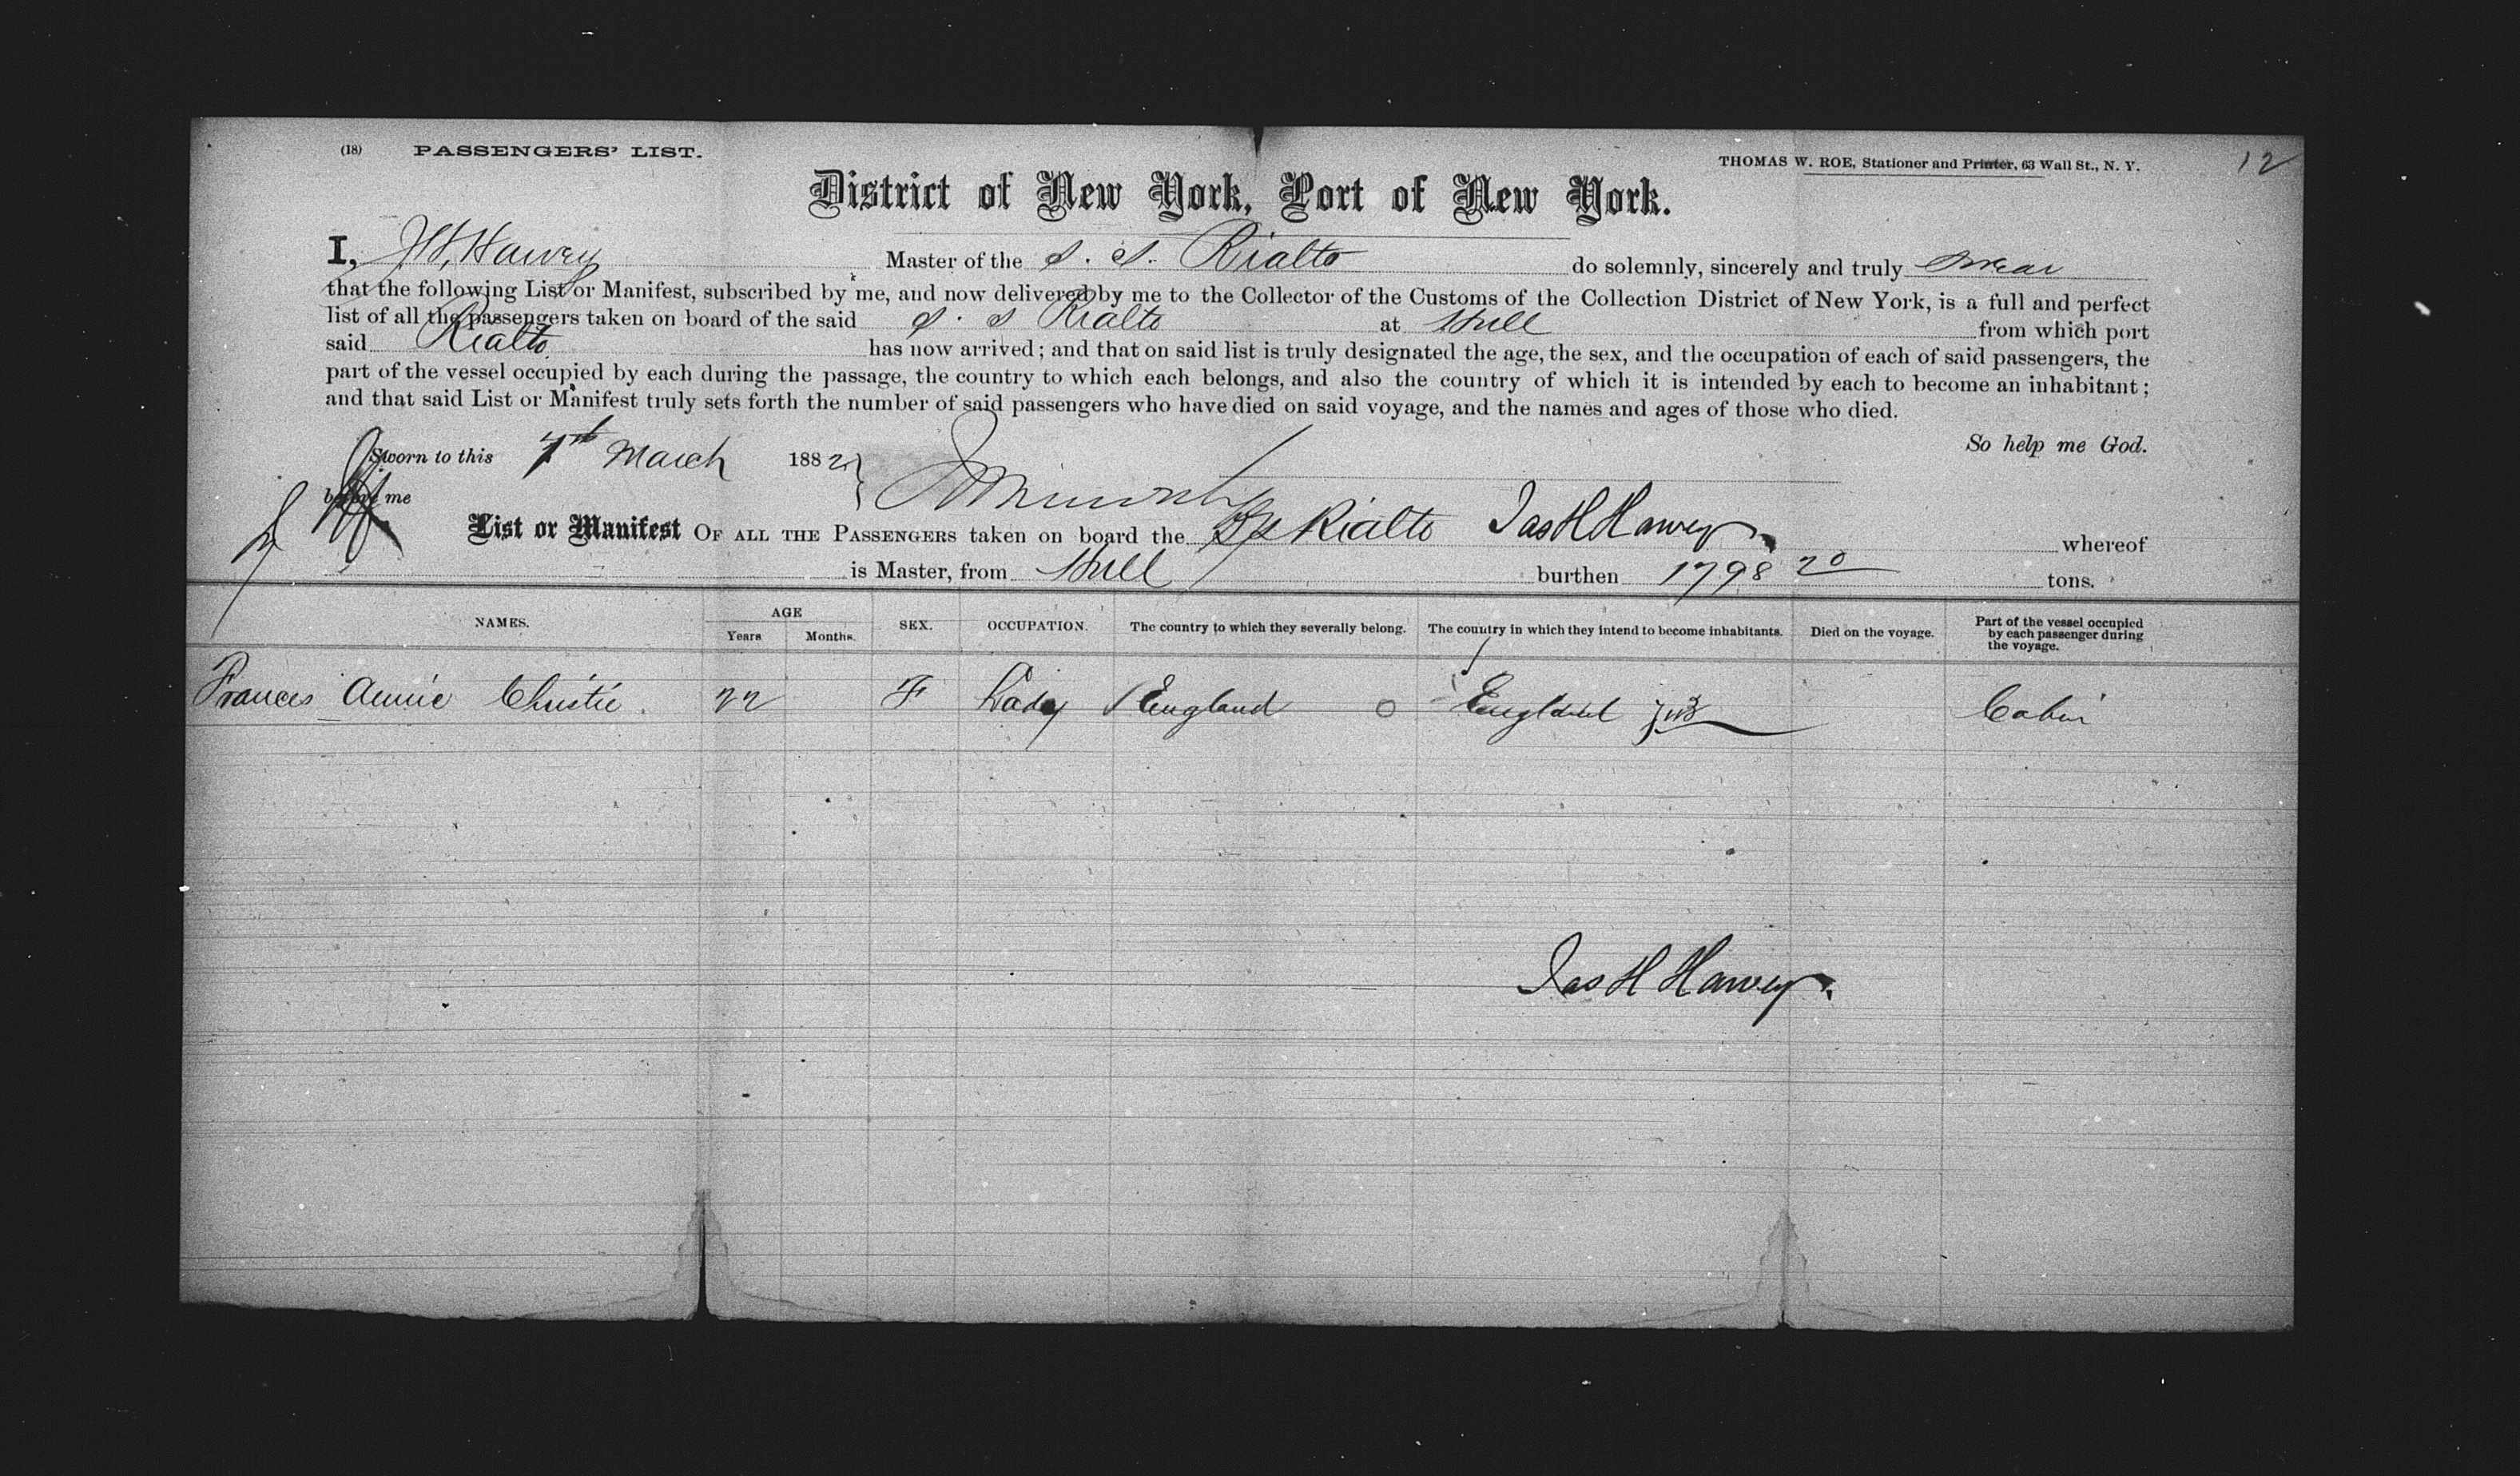 (18) PASSENGERS' LIST.
THOMAS W. ROE, Stationer and Printer, 63 Wall St., N. Y.
12
District of New York, Port of New York.
I, J H Harvey Master of the S. S. Rialto do solemnly, sincerely and truly swear
that the following List or Manifest, subscribed by me, and now delivered by me to the Collector of the Customs of the Collection District of New York, is a full and perfect
list of all the passengers taken on board of the said S. S Rialto at Hull from which port
said Rialto has now arrived; and that on said list is truly designated the age, the sex, and the occupation of each of said passengers, the
part of the vessel occupied by each during the passage, the country to which each belongs, and also the country of which it is intended by each to become an inhabitant;
and that said List or Manifest truly sets forth the number of said passengers who have died on said voyage, and the names and ages of those who died.
So help me God.
Sworn to this 7th March 1882
before me
List or Manifest OF ALL THE PASSENGERS taken on board the SS Rialto Jas H Harvey whereof
is Master, from Hull burthen 1798 20 tons.
NAMES. AGE Years Months. SEX. OCCUPATION. The country to which they severally belong. The country in which they intend to become inhabitants. Died on the voyage. Part of the vessel occupied by each passenger during the voyage.
Frances Annie Christie. 22 F Lady England England Cabin
Jas H Harvey.